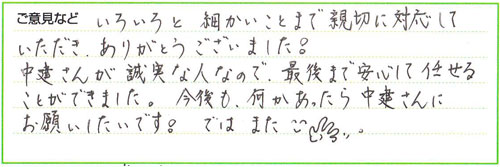 ご意見など いろいろと 細かいことまで親切に対応して
いただき、ありがとうございました!
中建さんが誠実な人なので、最後まで安心して任せる
ことができました。 今後も、何かあったら中建さんに
お願いしたいです! では また